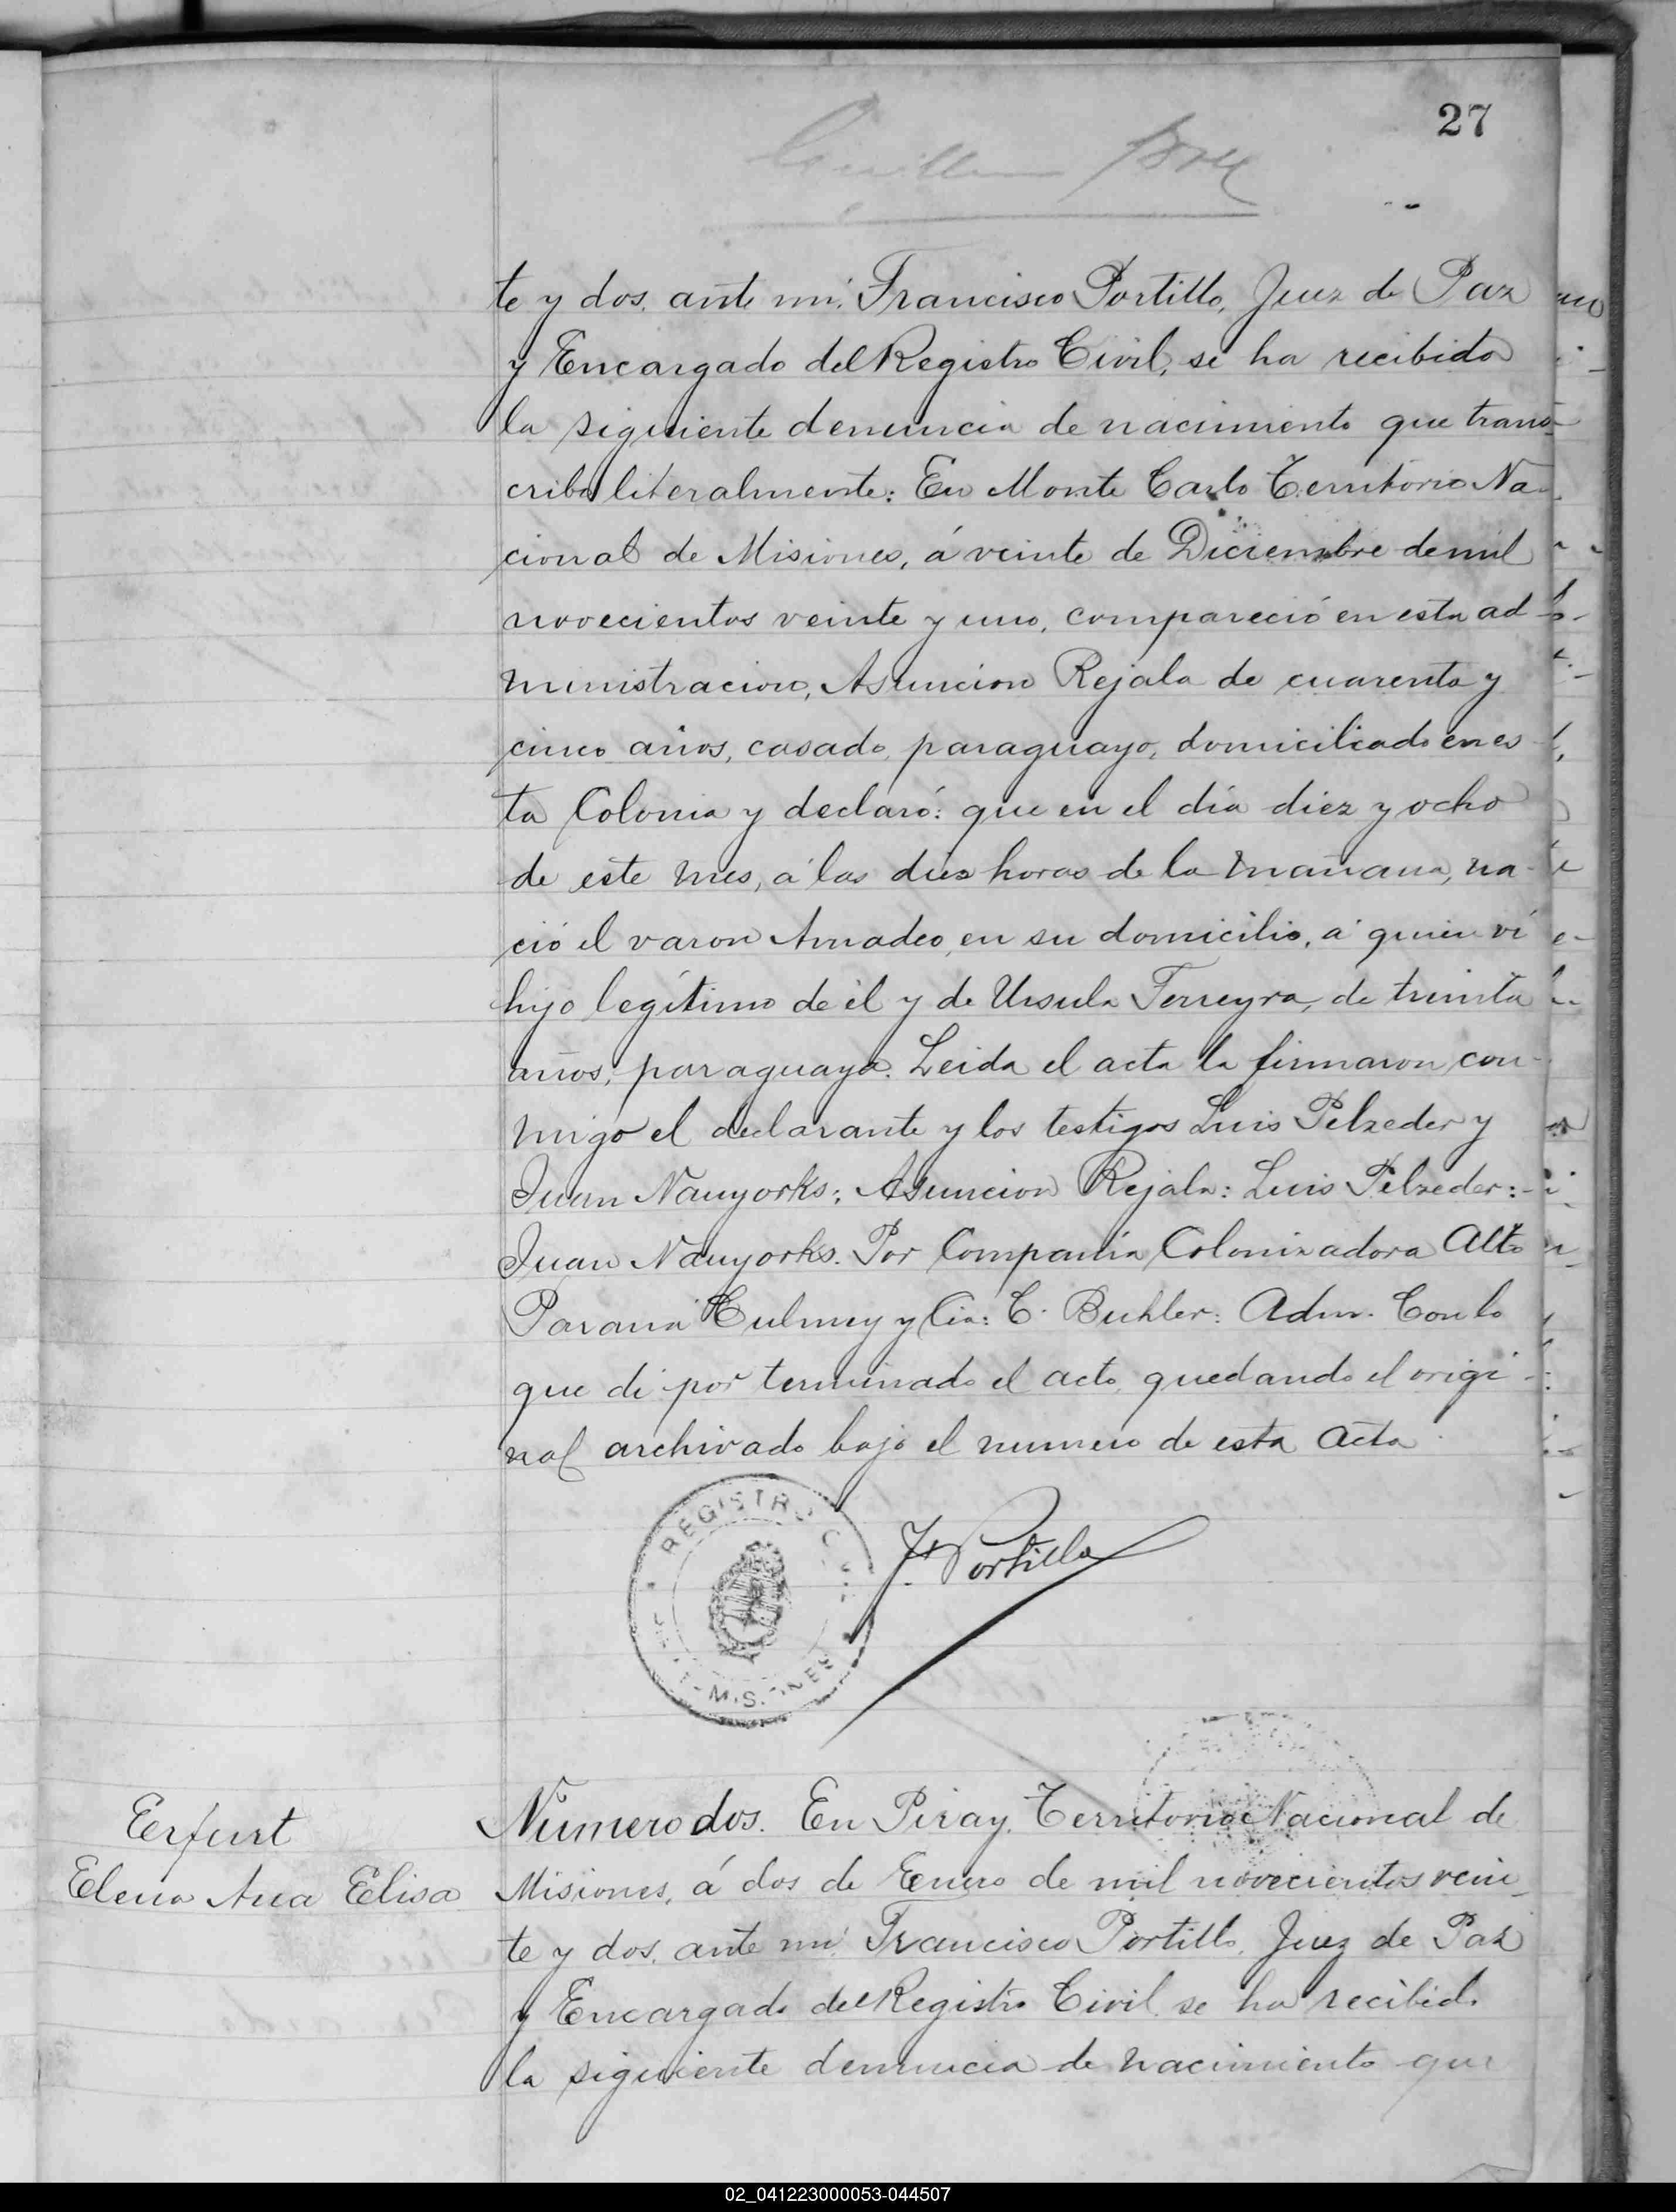 27
te y dos, ante mi, Francisco Portillo, Juez de Paz
y Encargado del Registro Civil, se ha recibido
la siguiente denuncia de nacimiento que trans-
cribo literalmente: En Monte Carlo Territorio Na-
cional de Misiones, á veinte de Diciembre de mil
novecientos veinte y uno, compareció en esta ad
ministracion, Asuncion Rejala de cuarenta y
cinco años, casado, paraguayo, domiciliado en es
ta Colonia y declaró: que en el día diez y ocho
de este mes, á las diez horas de la mañana, na-
ció el varon Amadeo, en su domicilio, á quien ví
hijo legítimo de él y de Ursula Ferreyra, de treinta
años, paraguaya. Leida el acta la firmaron con-
migo el declarante y los testigos Luis Pelzeder y
Juan Nauyorks: Asuncion Rejala: Luis Pelzeder:-
Juan Nauyorks. Por Compañia Colonizadora Alto
Paraná Culmey y Cia: C. Buhler: Adm. Con lo
que di por terminado el acto, quedando el origi-
nal archivado bajo el numero de esta Acta.
REGISTRO
F. Portillo
Erfurt
Elena Ana Elisa
Número dos. En Piray, Territorio Nacional de
Misiones, á dos de Enero de mil novecientos vein-
te y dos, ante mi Francisco Portillo, Juez de Paz
y Encargado del Registro Civil, se ha recibido
la siguiente denuncia de nacimiento que
02_041223000053-044507